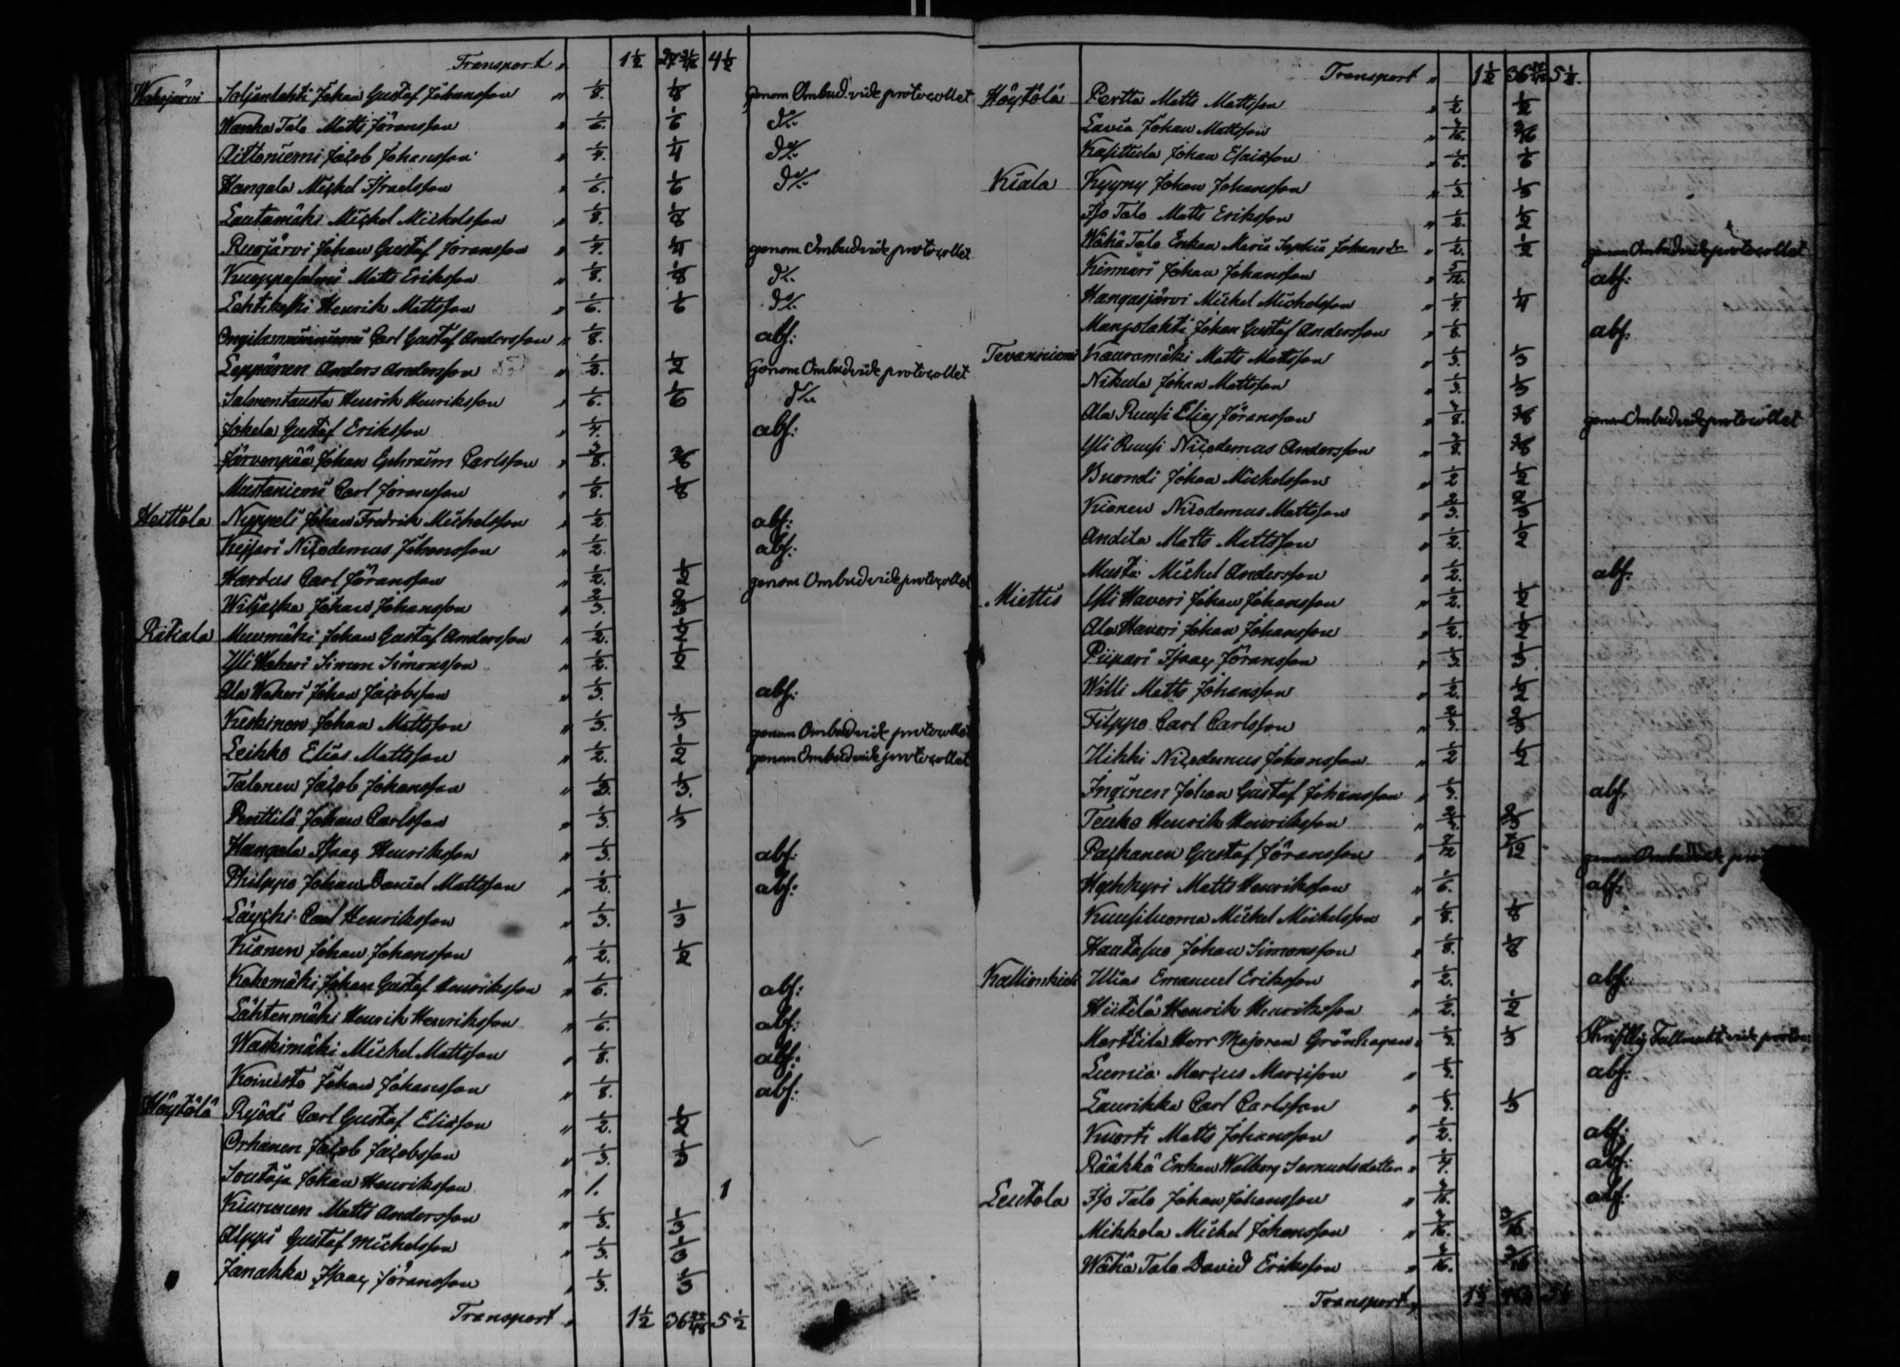 Transport „ 1½ 4½
Saljanlahti Johan Gustaf Johansson „ 1/8. 1/8 genom Ombud. vide protocollet
Wanha Talo Matts Jöransson „ 1/6. 1/6 d:o
Aittoniemi Jacob Johansson „ 1/4. 1/4 d:o
Hangala Michel Israelsson „ 1/6. 1/6 d:o
Lautamäki Michel Michelsson „ 1/8. 1/8
Ruojärvi Johan Gustaf Jöransson „ 1/4. 1/4 genom Ombud vide protocollet
Kuoppasalmi Matts Eriksson „ 1/8. 1/8 d:o
Lahtikoski Henrik Mattsson „ 1/6. 1/6 d:o
Carl Gustaf Andersson „ 1/8. abs:
Leppänen Anders Andersson „ 1/2. 1/2 Genom Ombud vide protocollet
Salmentausta Henrik Henriksson „ 1/6. 1/6 d:o
Jokela Gustaf Eriksson „ 1/4. abs:
Järvenpää Johan Ephraim Carlsson „ 3/8. 3/8
Mustaniemi Carl Jöransson „ 1/8. 1/8
Hoittola Nyppeli Johan Fredrik Michelsson „ 1/2. abs:
Keisari Nicodemus Johansson „ 1/2. abs:
Hardus Carl Jöransson „ 1/2. 1/2 genom Ombud vide protocollet
Johan Johansson „ 2/3. 2/3
Rekiala Muurmäki Johan Gustaf Andersson „ 1/2. 1/2
Yli Wakeri Simon Simonsson „ 1/2. 1/2
Ala Wakeri Johan Jacobsson „ 1/3. abs:
Keskinen Johan Mattsson „ 1/3. 1/3 genom Ombud vide protocollet
Leikko Elias Mattsson „ 1/2. 1/2 genom Ombud vide protocollet
Talonen Jacob Johansson „ 1/3. 1/3.
Penttilä Johan Carlsson „ 1/3. 1/3
Hangala Isaac Henriksson „ 1/3. abs:
Philppo Johan Daniel Mattsson „ 1/2. abs:
Carl Henriksson „ 1/3. 1/3
Kianen Johan Johansson „ 1/2. 1/2
Kokemäki Johan Gustaf Henriksson „ 1/6. abs:
Lähtenmäki Henrik Henriksson „ 1/6. abs:
Waskimäki Michel Mattsson „ 1/8. abs:
Koivisto Johan Johansson „ 1/8. abs:
Höytölä Ryödi Carl Gustaf Eliasson „ 1/2. 1/2
Orhanen Jacob Jacobsson „ 1/3. 1/3
Soutaja Johan Henriksson „ 1. 1
Kiurunen Matts Andersson „ 1/3. 1/3
Alppi Gustaf Michelsson „ 1/3. 1/3
Janakka Isaac Jöransson „ 1/3. 1/3
Transport „ 1½ 5½
Transport „ 1½ 5½
Höytölä Pertta Matts Mattsson „ 1/2. 1/2
Lavia Johan Mattsson „ 3/16. 3/16
Kasittula Johan Esaiasson „ 1/6. 1/6
Kiala Kyyny Johan Johansson „ 1/3. 1/3
Iso Talo Matts Eriksson „ 1/2. 1/2
Wähä Talo Enkan Maria Sophia Johansdr „ 1/2. 1/2 genom Ombud vide protocollet
Kinnari Johan Johansson „ 5/12. abs:
Hangasjärvi Michel Michelsson „ 1/4. 1/4
Mangolahti Johan Gustaf Andersson „ 1/8. abs.
Tevaniemi Kauramäki Matts Mattsson „ 1/3. 1/3
Nikula Johan Mattsson „ 1/3. 1/3
Ala Ruusi Elias Jöransson „ 3/8. 3/8 genom Ombud vide protocollet
Yli Ruusi Nicodemus Andersson „ 3/8. 3/8
Buondi Johan Michelsson „ 1/2 1/2
Kianen Nicodemus Mattsson „ 2/3. 2/3
Andila Matts Mattsson „ 1/2. 1/2
Musta Michel Andersson „ 1/2. abs.
Miettis Yli Haveri Johan Johansson „ 1/2. 1/2
Ala Haveri Johan Johansson „ 1/2. 1/2
Piipari Isaac Jöransson „ 1/3. 1/3
Willi Matts Johansson „ 1/2. 1/2
Filppo Carl Carlsson „ 2/3. 2/3
Uikki Nicodemus Johansson „ 1/2 1/2
Inginen Johan Gustaf Johansson „ 1/3. abs.
Teuko Henrik Henriksson „ 2/3. 2/3
Paskanen Gustaf Jöransson „ 7/12 7/12
Matts Henriksson „ 1/6. abs.
Kuusiluoma Michel Michelsson „ 1/8. 1/8
Hautasuo Johan Simonsson „ 1/8. 1/8
Ulias Emanuel Eriksson „ 1/2. abs:
Heitilä Henrik Henriksson „ 1/2. 1/2
Marttila Herr Majoren Grönhagen „ 1/3. 1/3 Skriftlig Fullmakt vide
Lumia Marcus „ 1/3. abs:
Laurikka Carl Carlsson „ 1/3. 1/3
Kuorti Matts Johansson „ 1/2. abs:
Räähkä Enkan Walborg Samuelsdotter „ 1/4. abs:
Leutola Iso Talo Johan Johansson „ abs:
Mikkola Michel Johansson „ 3/16. 3/16
Wähä Talo David Eriksson „ 3/16. 3/16
Transport „